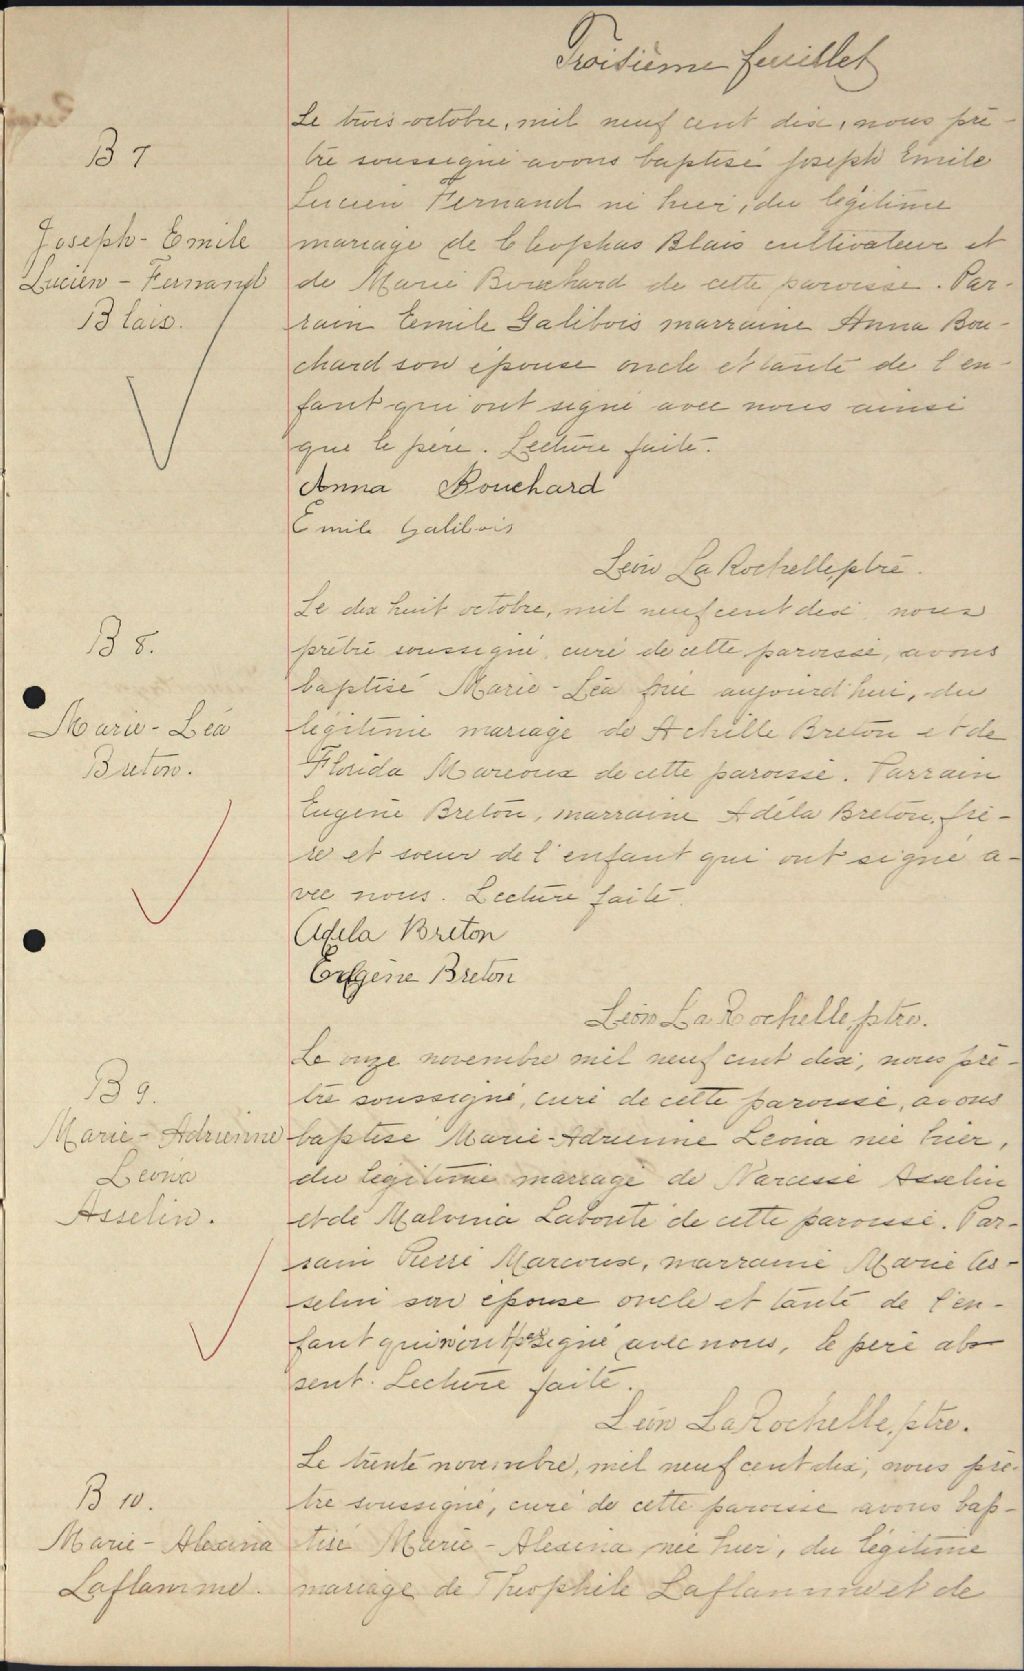 Troisième feuillet
B 7
Joseph-Emile
Lucien-Fernand
Blais.
Le trois octobre, mil neuf cent dix, nous prê-
tre soussigné avons baptisé Joseph Emile
Lucien Fernand né hier, du légitime
mariage de Cléophas Blais cultivateur et
de Marie Bouchard de cette paroisse. Par-
rain Emile Galibois marraine Anna Bou-
chard son épouse oncle et tante de l'en-
fant qui ont signé avec nous ainsi
que le père. Lecture faite.
Anna Bouchard
Emile Galibois
Léon LaRochelle ptre.
B 8.
Marie-Léa
Breton.
Le dix huit octobre, mil neuf cent dix nous
prêtre soussigné, curé de cette paroisse, avons
baptisé Marie-Léa née aujourd'hui, du
légitime mariage de Achille Breton et de
Florida Marcoux de cette paroisse. Parrain
Eugène Breton, marraine Adéla Breton, frè-
re et soeur de l'enfant qui ont signé a-
vec nous. Lecture faite.
Adela Breton
Eugène Breton
Léon LaRochelle, ptre.
B 9.
Marie-Adrienne
Leona
Asselin.
Le onze novembre mil neuf cent dix, nous prê-
tre soussigné, curé de cette paroisse, avons
baptisé Marie-Adrienne Leona née hier,
du légitime mariage de Narcisse Asselin
et de Malvina Labonté de cette paroisse. Par-
rain Pierre Marcoux, marraine Marie As-
selin son épouse oncle et tante de l'en-
fant qui n'ont pas signé avec nous, le père ab-
sent. Lecture faite.
Léon LaRochelle, ptre.
B 10.
Marie-Alexina
Laflamme.
Le trente novembre, mil neuf cent dix, nous prê-
tre soussigné, curé de cette paroisse avons bap-
tisé Marie-Alexina née hier, du légitime
mariage de Théophile Laflamme et de